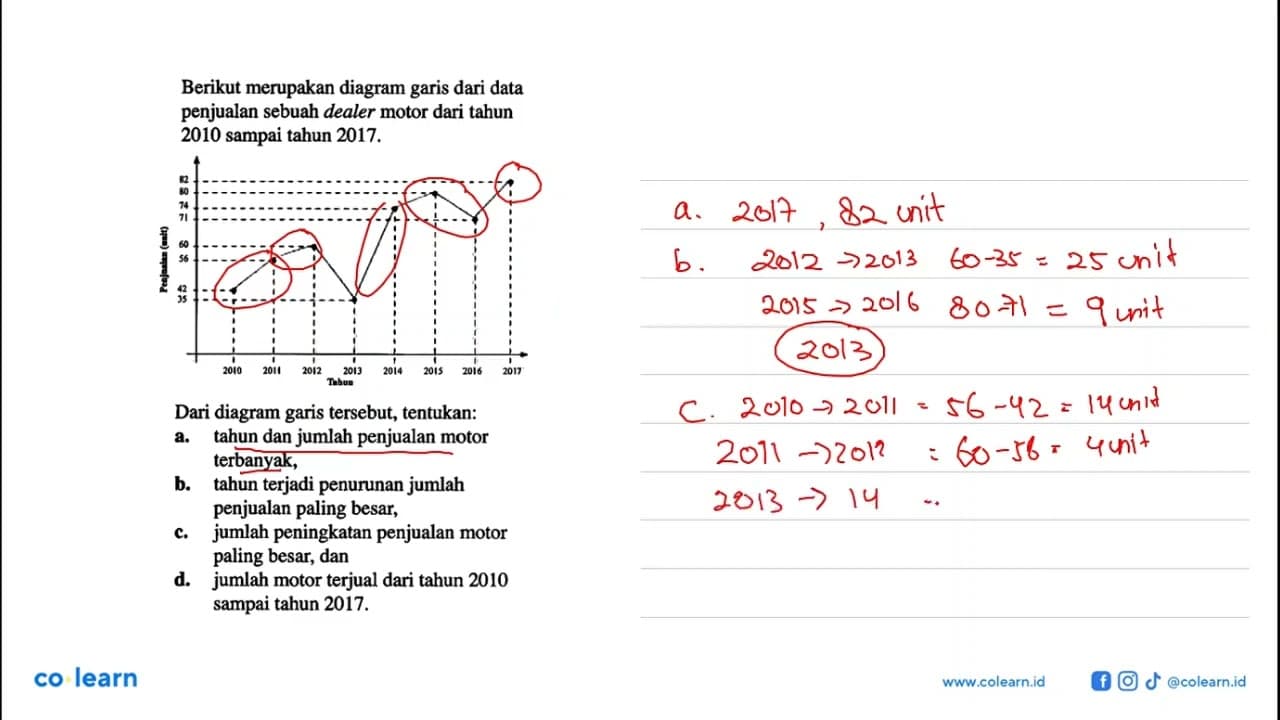 Berikut merupakan diagram garis dari data
penjualan sebuah dealer motor dari tahun
2010 sampai tahun 2017.
Penjualan (unit)
82
80
74
71
60
56
42
35
2010 2011 2012 2013 2014 2015 2016 2017
Tahun
Dari diagram garis tersebut, tentukan:
a. tahun dan jumlah penjualan motor
terbanyak,
b. tahun terjadi penurunan jumlah
penjualan paling besar,
c. jumlah peningkatan penjualan motor
paling besar, dan
d. jumlah motor terjual dari tahun 2010
sampai tahun 2017.
a. 2017, 82 unit
b. 2012 → 2013 60-35 = 25 unit
2015 → 2016 80-71 = 9 unit
2013
C. 2010 → 2011 = 56-42 = 14 unit
2011 → 2012 = 60-56 = 4 unit
2013 → 14 =
co learn
www.colearn.id
@colearn.id